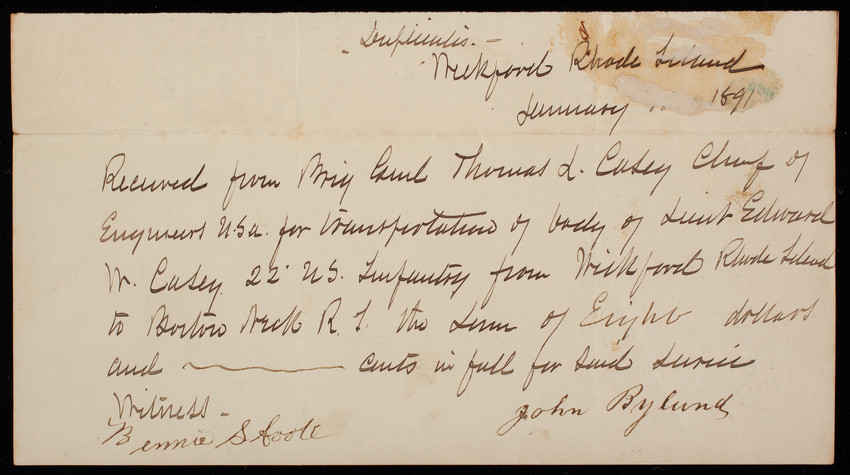 Duplicate.
Wickford Rhode Island
January 1891
Received from Brig Genl Thomas L. Casey Chief of
Engineers U.S.A. for transportation of body of Lieut Edward
W. Casey 22 U.S. Infantry from Wickford Rhode Island
to Boston Neck R. I. the sum of Eight dollars
and cents in full for said service
Witness -
John Bylund
Bennie S